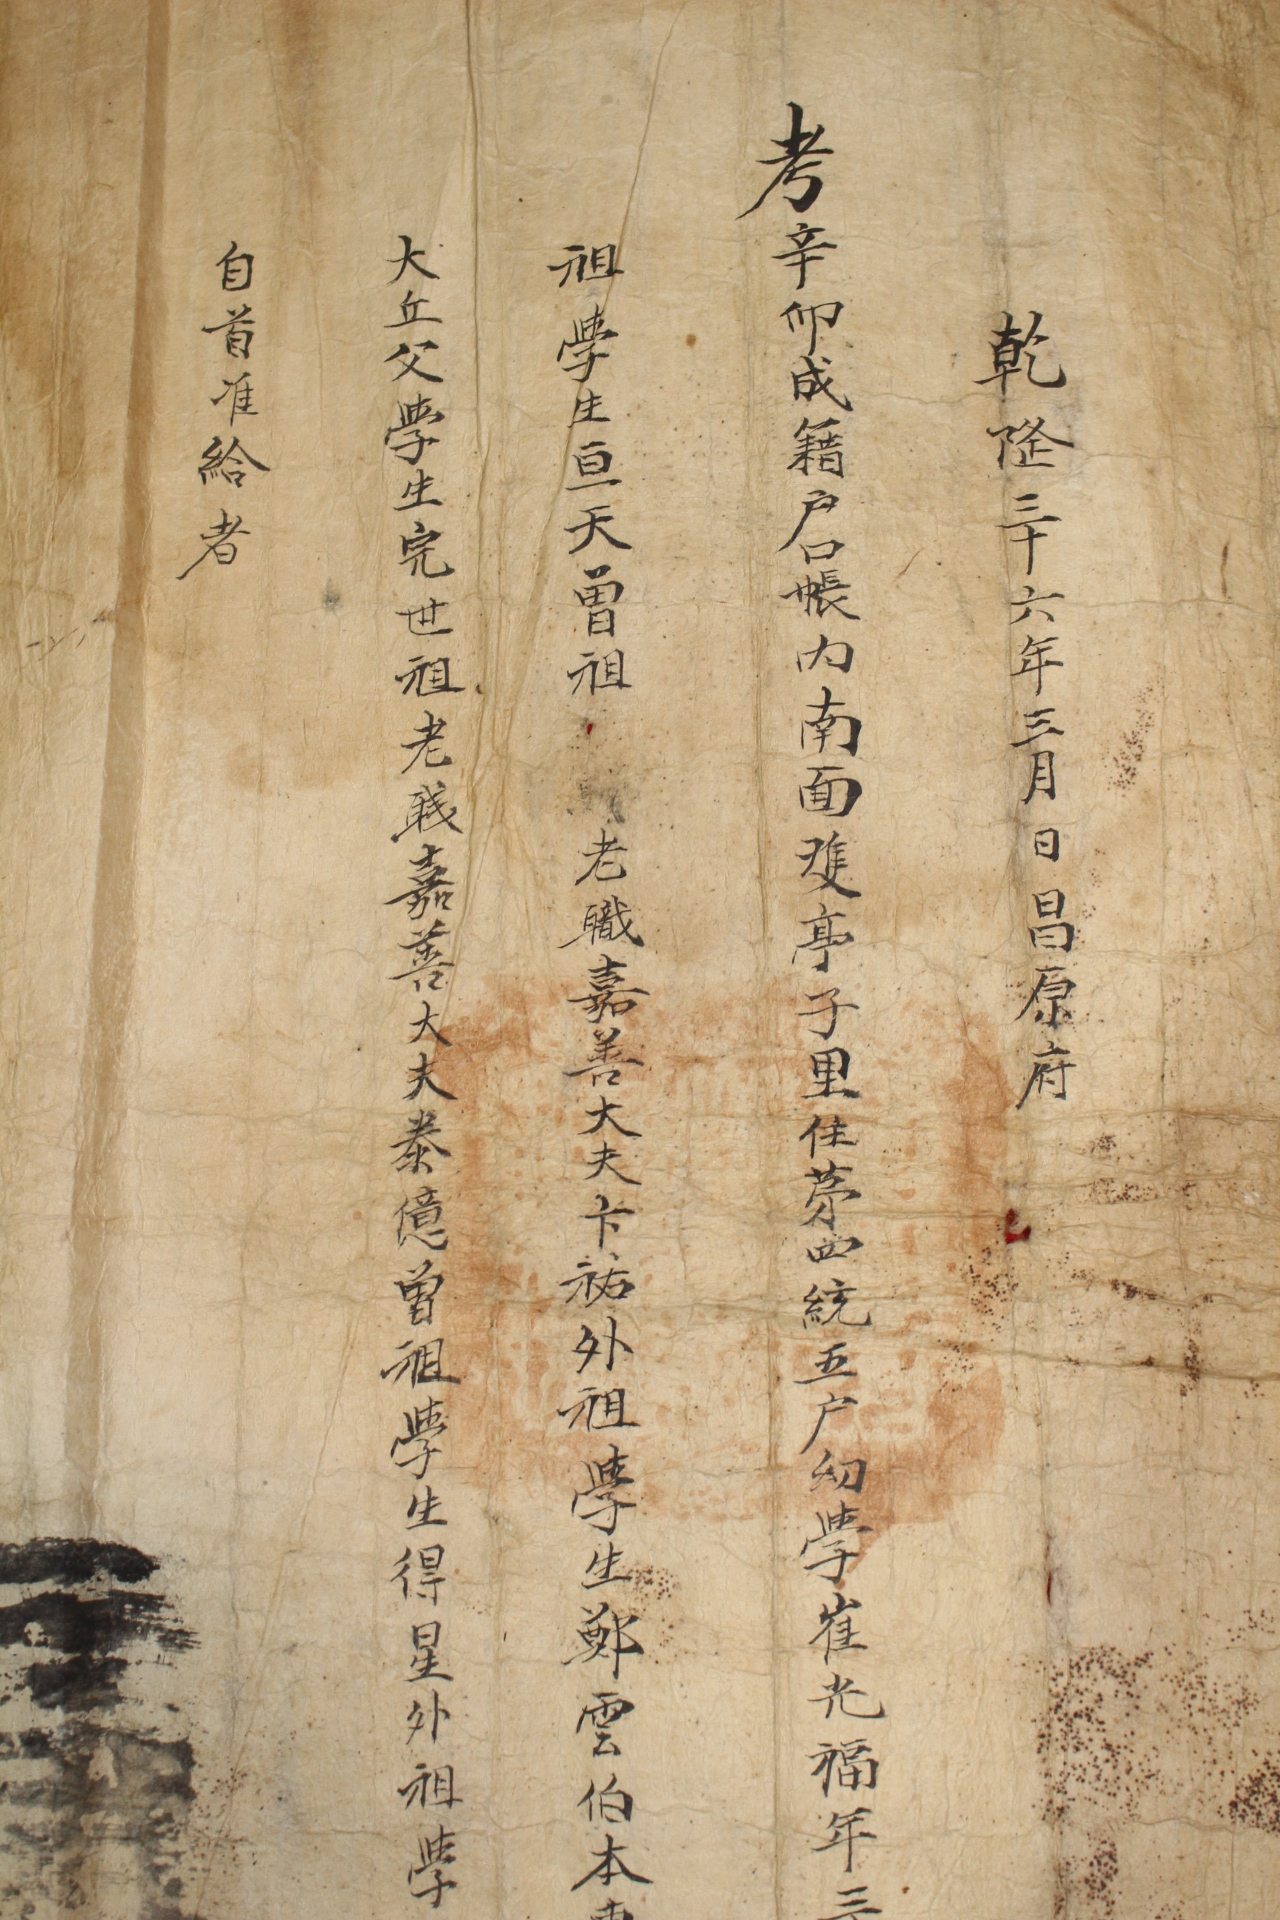 乾隆三十六年三月日昌原府
考辛卯成籍户口帳內南面雙亭子里住茅四統五户幼學崔光福年三
祖學生亘天曾祖 老職嘉善大夫卞祐外祖學生鄭雲伯本
大丘父學生完世祖老職嘉善大夫泰億曾祖學生得星外祖學
自首准給者